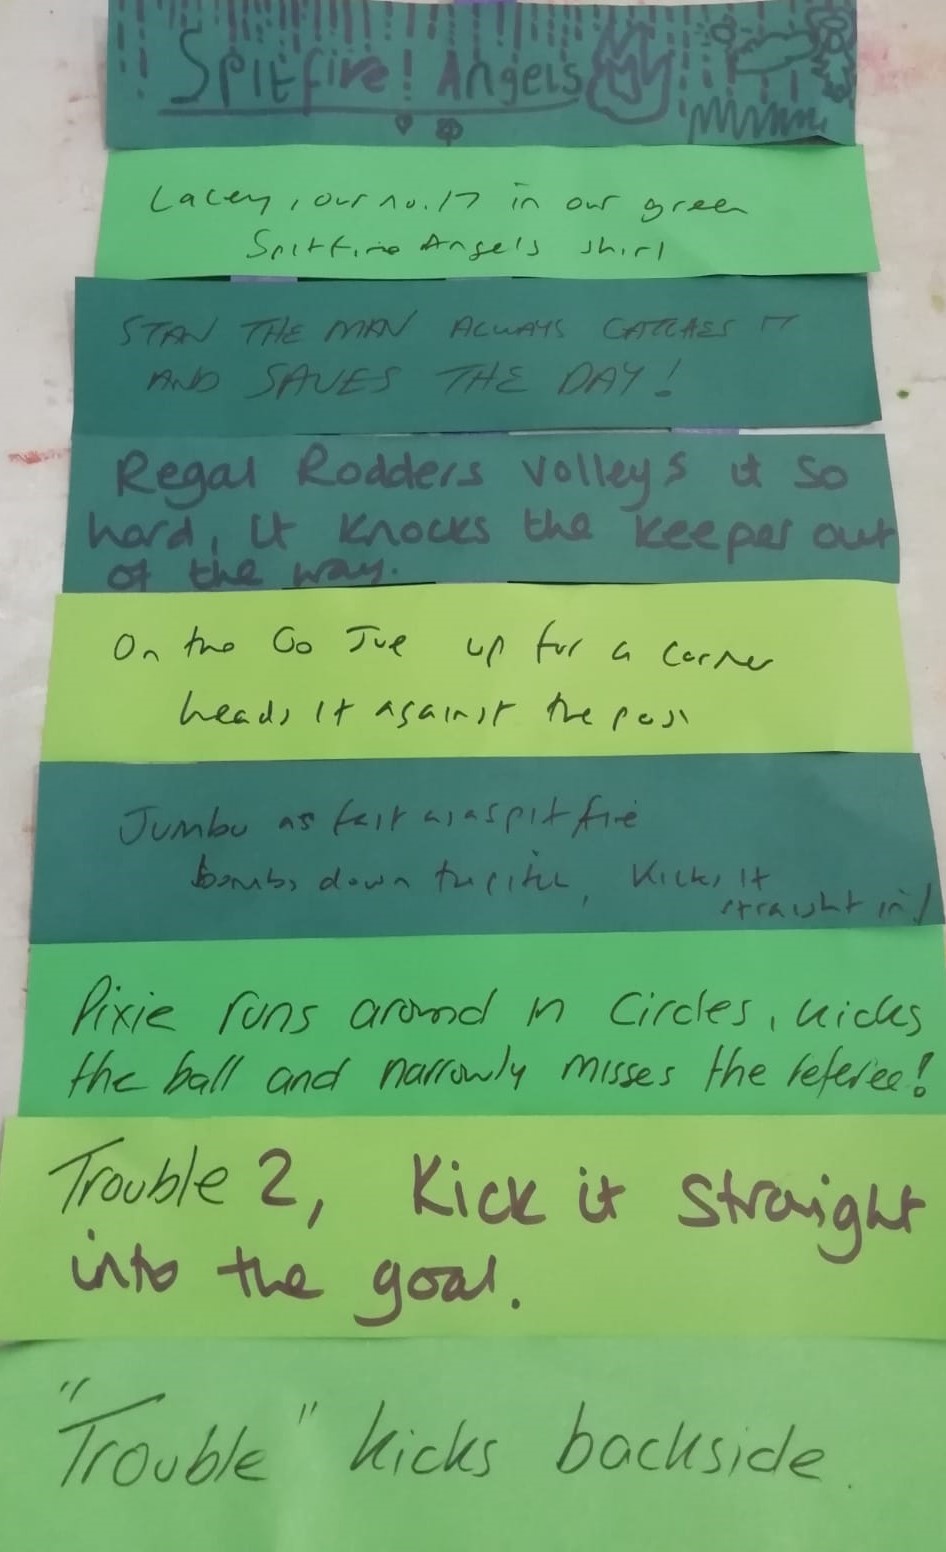 Spitfire! Angels
Lacey, our no.17 in our green
Spitfire Angels shirt
STAN THE MAN ALWAYS CATCHES IT
AND SAVES THE DAY!
Regal Rodders volleys it so
hard, it knocks the keeper out
of the way.
On the Go Joe up for a corner
heads it against the post
Jumbo as fast as a spitfire
bombs down the pitch, kicks it
straight in!
Pixie runs around in circles, kicks
the ball and narrowly misses the referee!
Trouble 2, Kick it straight
into the goal.
"Trouble" kicks backside.